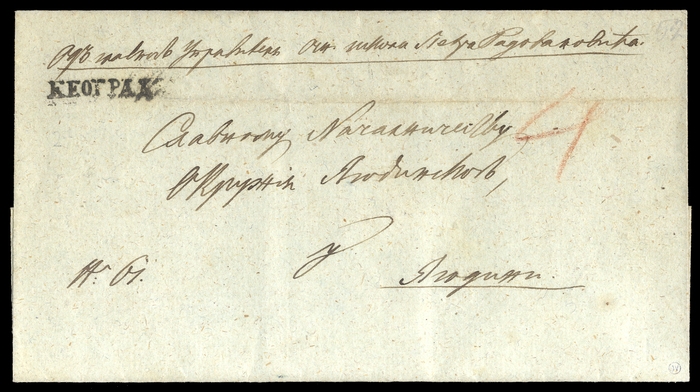 Одъ главногъ Управитель Осн. школа Петра Радовановића.
КЕОГРАД
Славному Началничеству
Окружія Ягодинскогъ,
у
Ягодини.
№ 61.